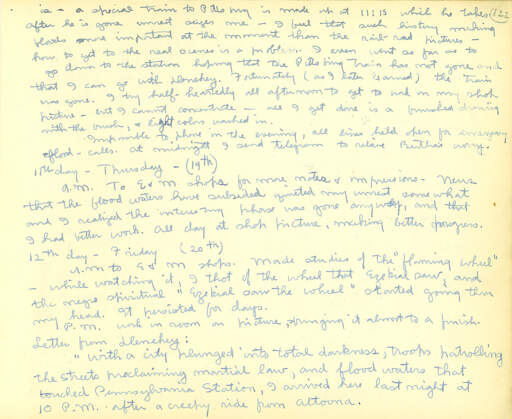 is - a special train to Pittsburg is made up at 11:15 which he takes (122
after he is gone unrest seizes me - I feel that such history making
floods more important at the moment than the rail-road pictures -
how to get to the real scenes is a problem. I even went so far as to
go down to the station hoping that the Pittsburg train has not gone and
that I can go with Hlenchey. Fortunately (as I later learned) the train
was gone. I try half-heartedly all afternoon to get to work on my shop
picture - but I cannot concentrate - all I get done is a finished drawing
with the brush, & light colors washed in.
Impossible to phone in the evening, all lines held open for emergency
flood-calls. At midnight I send telegram to relieve Bertha's worry.
11th day - Thursday - (19th)
A.M. To E & M shops for more notes & impressions - News
that the flood waters have subsided quieted my unrest somewhat
and I realized the interesting phase was gone anyway, and that
I had better work. All day at shop picture, making better progress.
12th day - Friday (20th)
A.M. to E & M shops. Made studies of the "flaming wheel"
- while watching it, I thot of the wheel that Ezekial saw, and
the negro spiritual "Ezekial saw the wheel" started going thru
my head. It persisted for days.
P.M. work in room on picture, bringing it almost to a finish.
Letter from Hlenchey:
"With a city plunged into total darkness, troops patrolling
the streets proclaiming martial law, and flood waters that
touched Pennsylvania Station, I arrived here last night at
10 P.M. after a creepy ride from Altoona.